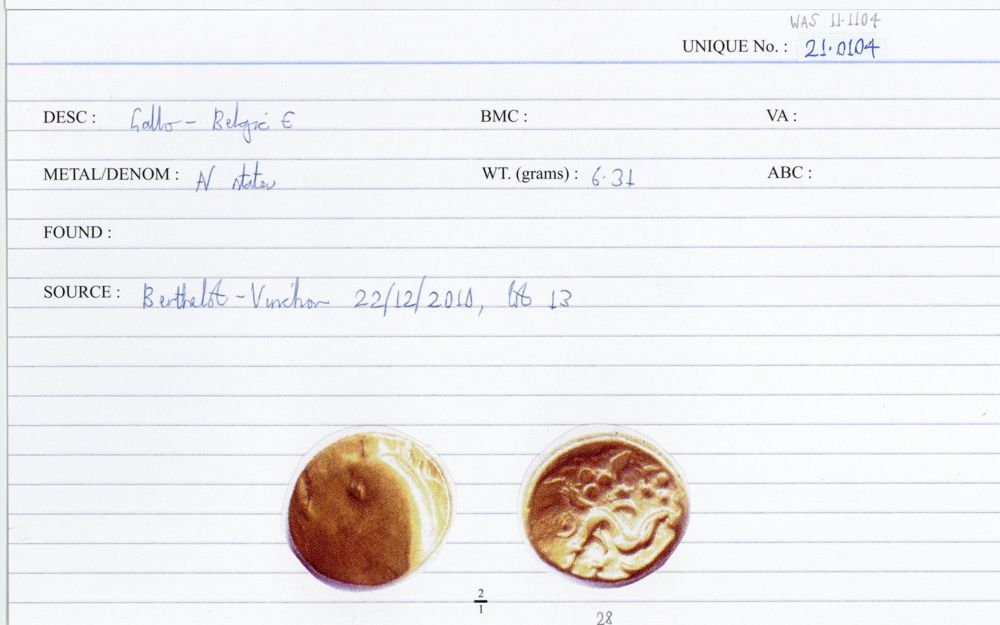 WAS 11.1104
UNIQUE No. : 21.0104
DESC : Gallo - Belgic E BMC : VA :
METAL/DENOM : N stater WT. (grams) : 6.31 ABC :
FOUND :
SOURCE : Berthelot - Vinchon 22/12/2010, lot 13
2
1
28